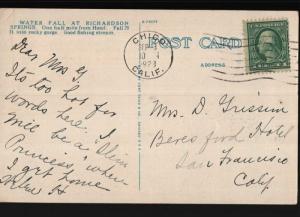 WATER FALL AT RICHARDSON
SPRINGS. One half mile from Hotel. Fall 70
ft. into rocky gorge. Good fishing stream.
POST CARD
ADDRESS
CHICO
SEP
10
1923
CALIF.
Dear Mrs G.
Its too hot for
words here. I
will be a "Slim
Princess" when
I get home
Mrs. D. Grissim
Beresford Hotel
San Francisco
Calif